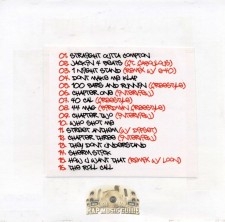 01. STRAIGHT OUTTA COMPTON
02. JACK'N 4 BEATS (FT. FABOLOUS)
03. 1 NIGHT STAND (REMIX W/ E-40)
04. DONT MAKE ME KLAP
05. 100 BARS AND RUNNIN (FREESTYLE)
06. CHAPTER ONE (INTERVIEW)
07. 40 CAL (FREESTYLE)
08. 44 MAG (FREESTYLE)
09. CHAPTER TWO (INTERVIEW)
10. WHO SHOT ME
11. STREET ANTHEM
12. CHAPTER THREE (INTERVIEW)
13. THEY DON'T UNDERSTAND
14. SHERM STICK
15. HOW U WANT THAT (REMIX W/ LOON)
16. THE ROLL CALL